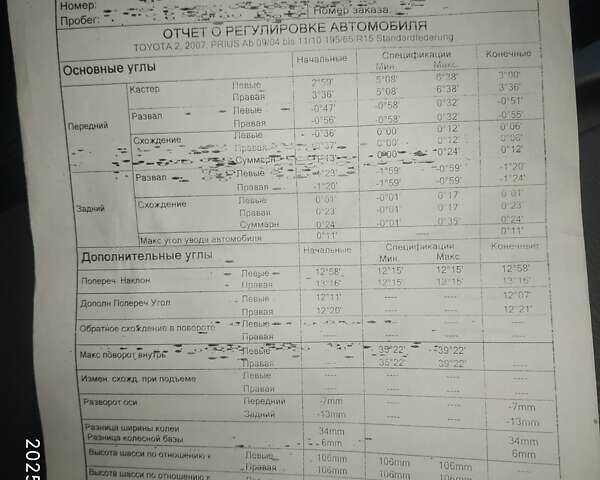 Номер:
Пробег:
Номер заказа:
ОТЧЕТ О РЕГУЛИРОВКЕ АВТОМОБИЛЯ
TOYOTA 2, 2007, PRIUS Ab 09/04 bis 11/10 195/65 R15 Standardfederung
Основные углы Начальные Спецификации Конечные
Мин. Макс.
Передний Кастер Левые 2°59' 5°08' 6°38' 3°00'
Правая 3°36' 5°08' 6°38' 3°36'
Развал Левые -0°47' -0°58' 0°32' -0°51'
Правая -0°56' -0°58' 0°32' -0°55'
Схождение Левые -0°36' 0°00' 0°12' 0°06'
Правая 0°00' 0°12' 0°06'
Суммарн 0°00' 0°24' 0°12'
Задний Развал Левые -1°23' -1°59' -0°59' -1°20'
Правая -1°20' -1°59' -0°59' -1°24'
Схождение Левые 0°01' -0°01' 0°17' 0°01'
Правая 0°23' -0°01' 0°17' 0°23'
Суммарн 0°24' -0°01' 0°35' 0°24'
Макс угол увода автомобиля 0°11' ---- 0°11'
Дополнительные углы Начальные Спецификации Конечные
Мин. Макс
Попереч. Наклон Левые 12°58' 12°15' 12°15' 12°58'
Правая 13°16' 12°15' 12°15' 13°16'
Дополн Попереч Угол Левые 12°11' ---- ---- 12°07'
Правая 12°20' ---- ---- 12°21'
Обратное схождение в повороте Левые
Правая ---- ---- ---- ----
Макс поворот внутрь Левые 39°22' 39°22'
Правая ---- 35°22' 39°22' ----
Измен. схожд. при подъеме Левые ---- ---- ---- ----
Правая ---- ---- ---- ----
Разворот оси Передний -7mm ---- ---- -7mm
Задний -13mm ---- ---- -13mm
Разница ширины колеи 34mm ---- ---- 34mm
Разница колесной базы 6mm ---- ---- 6mm
Высота шасси по отношению к Левые 106mm 106mm 106mm ----
Высота шасси по отношению к Правая 106mm 106mm 106mm ----
2025